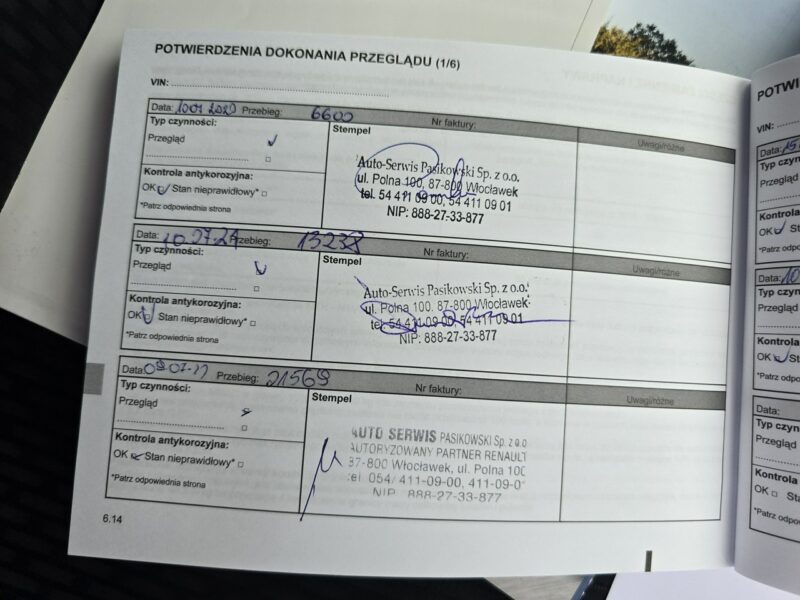 POTWIERDZENIA DOKONANIA PRZEGLĄDU (1/6)
VIN:
Data: Przebieg: 6600 Nr faktury:
Typ czynności:
Stempel
Uwagi/różne
Przegląd
Auto-Serwis Pasikowski Sp. z o.o.
ul. Polna 100, 87-800 Włocławek
tel. 54 411 09 00, 54 411 09 01
NIP: 888-27-33-877
Kontrola antykorozyjna:
OK Stan nieprawidłowy*
*Patrz odpowiednia strona
Data: Przebieg: 13238 Nr faktury:
Typ czynności:
Stempel
Uwagi/różne
Przegląd
Auto-Serwis Pasikowski Sp. z o.o.
ul. Polna 100, 87-800 Włocławek
tel. 54 411-09-00, 54 411 09 01
NIP: 888-27-33-877
Kontrola antykorozyjna:
OK Stan nieprawidłowy*
*Patrz odpowiednia strona
Data: Przebieg: 21569 Nr faktury:
Typ czynności:
Stempel
Uwagi/różne
Przegląd
AUTO SERWIS PASIKOWSKI Sp. z o.o
AUTORYZOWANY PARTNER RENAULT
87-800 Włocławek, ul. Polna 100
tel 054/ 411-09-00, 411-09-0
NIP 888-27-33-877
Kontrola antykorozyjna:
OK Stan nieprawidłowy*
*Patrz odpowiednia strona
6.14
POTWI
VIN:
Data:
Typ czyn
Przegląd
Kontrola
OK Sta
*Patrz odpo
Data:
Typ czyn
Przegląd
Kontrola
OK St
*Patrz odp
Data:
Typ czyn
Przegląd
Kontrola
OK St
*Patrz odp